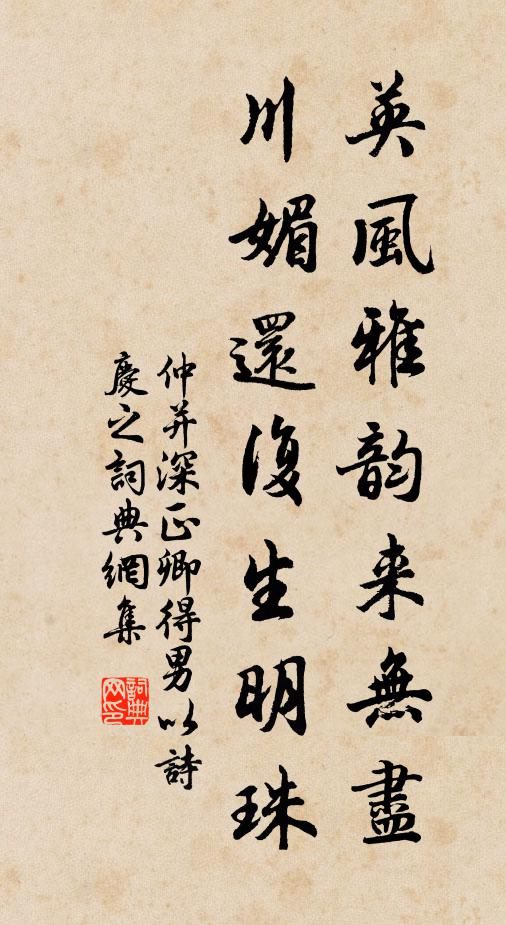 英風雅韵来無盡
川媚還復生明珠
仲并深正卿得男以詩
慶之詞典網集
詞典网印